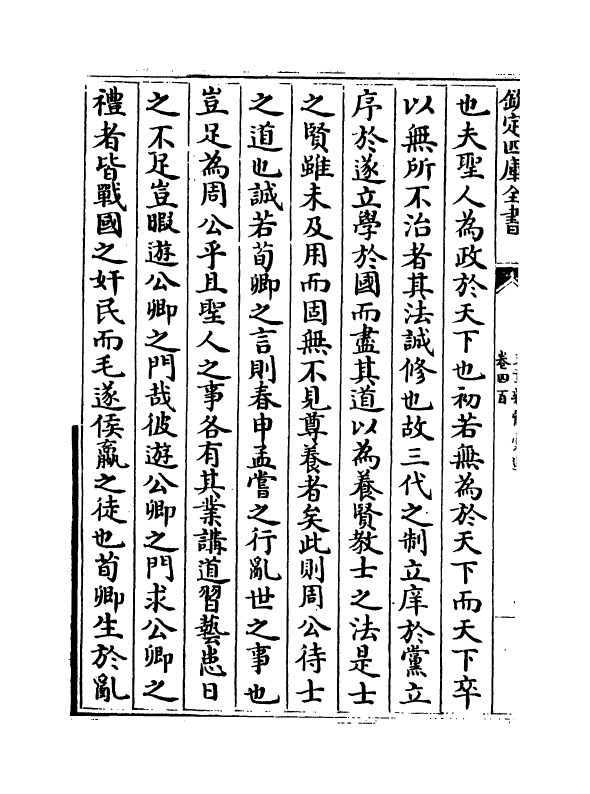 欽定四庫全書
卷四百
也夫聖人為政於天下也初若無為於天下而天下卒
以無所不治者其法誠修也故三代之制立庠於黨立
序於遂立學於國而盡其道以為養賢教士之法是士
之賢雖未及用而固無不見尊養者矣此則周公待士
之道也誠若荀卿之言則春申孟嘗之行亂世之事也
豈足為周公乎且聖人之事各有其業講道習藝患日
之不足豈暇遊公卿之門哉彼遊公卿之門求公卿之
禮者皆戰國之奸民而毛遂侯嬴之徒也荀卿生於亂